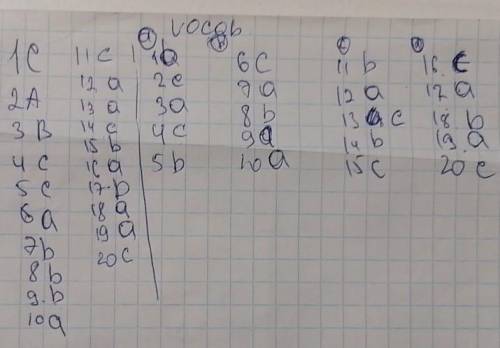 vocab
1C
2A
3B
4C
5C
6a
7b
8b
9.b
10a
11c
12a
13a
14c
15b
16a
17.b
18a
19a
20c
1a
2c
3a
4c
5b
6C
7a
8b
9a
10a
11b
12a
13 c
14b
15c
16.c
17a
18b
19.a
20c